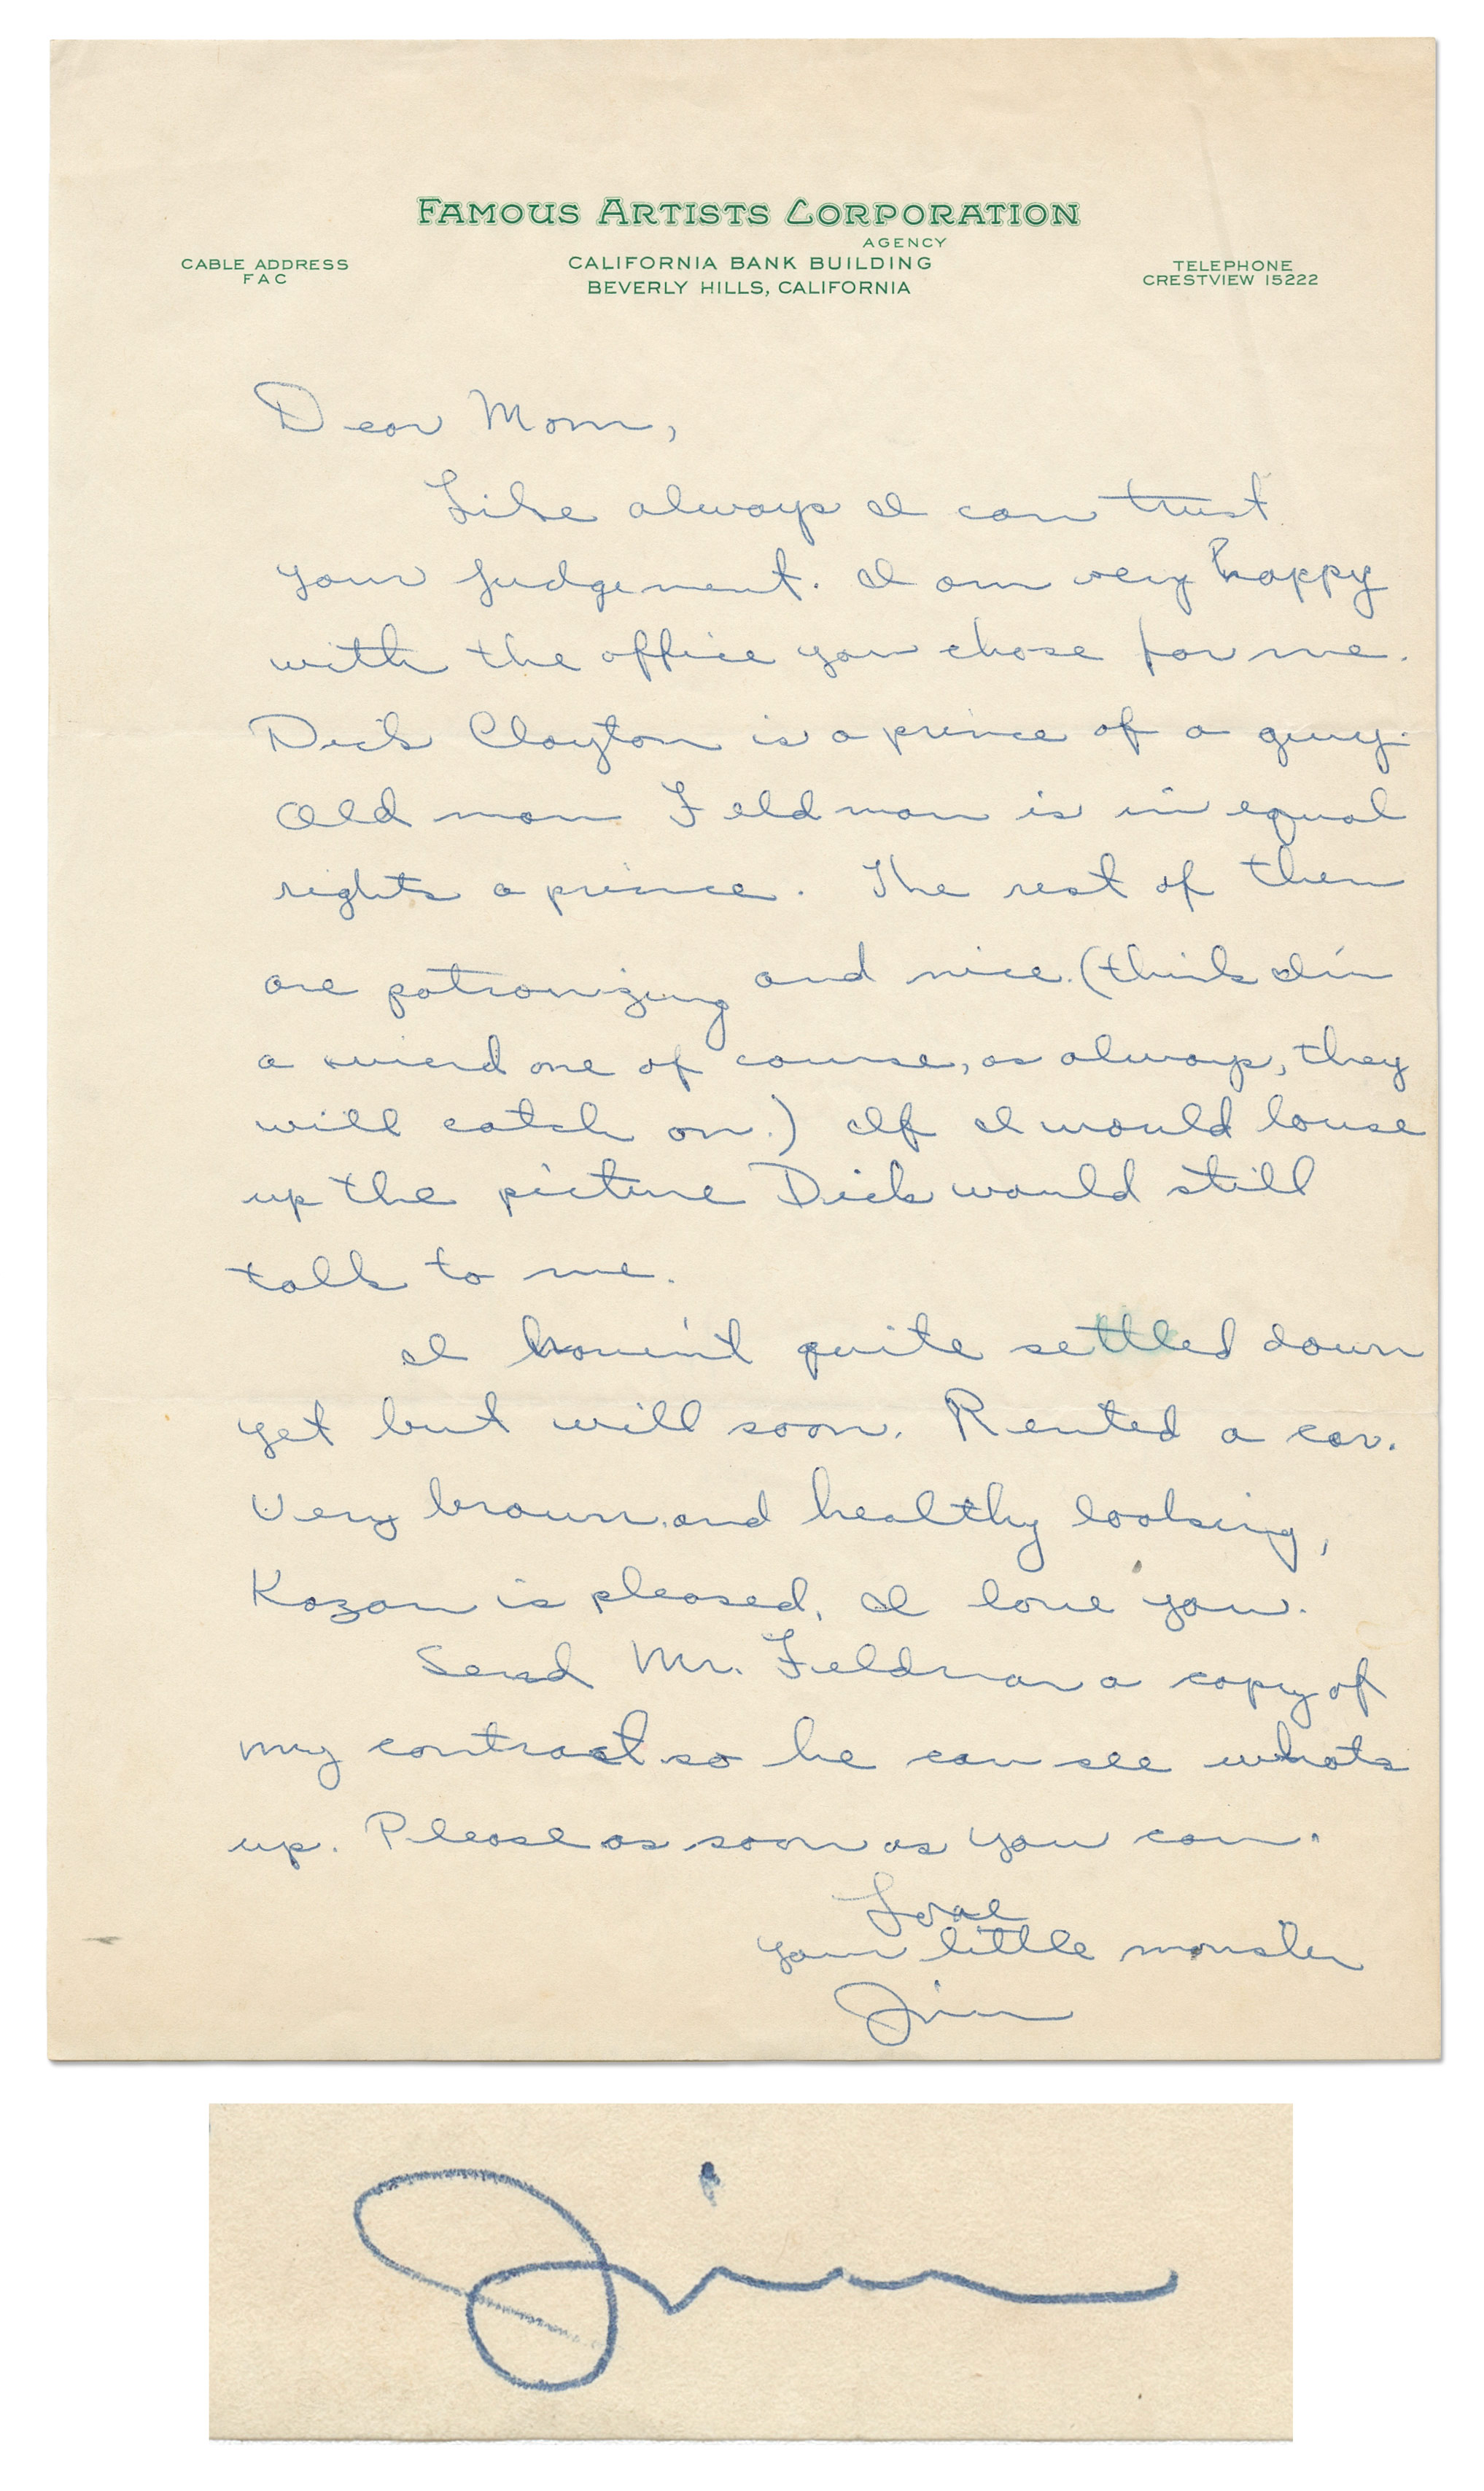 FAMOUS ARTISTS CORPORATION
AGENCY
CABLE ADDRESS
FAC
CALIFORNIA BANK BUILDING
BEVERLY HILLS, CALIFORNIA
TELEPHONE
CRESTVIEW 15222
Dear Mom,
Like always I can trust
your judgement. I am very happy
with the office you chose for me.
Dick Clayton is a prince of a guy.
Old man Feldman is in equal
rights a prince. The rest of them
are patronizing and nice. (think I'm
a wierd one of course, as always, they
will catch on.) If I would louse
up the picture Dick would still
talk to me.
I haven't quite settled down
yet but will soon. Rented a car.
Very brown and healthy looking,
Kazan is pleased, I love you.
Send Mr. Feldman a copy of
my contract so he can see whats
up. Please as soon as you can.
Love
your little monster
Jim
Jim